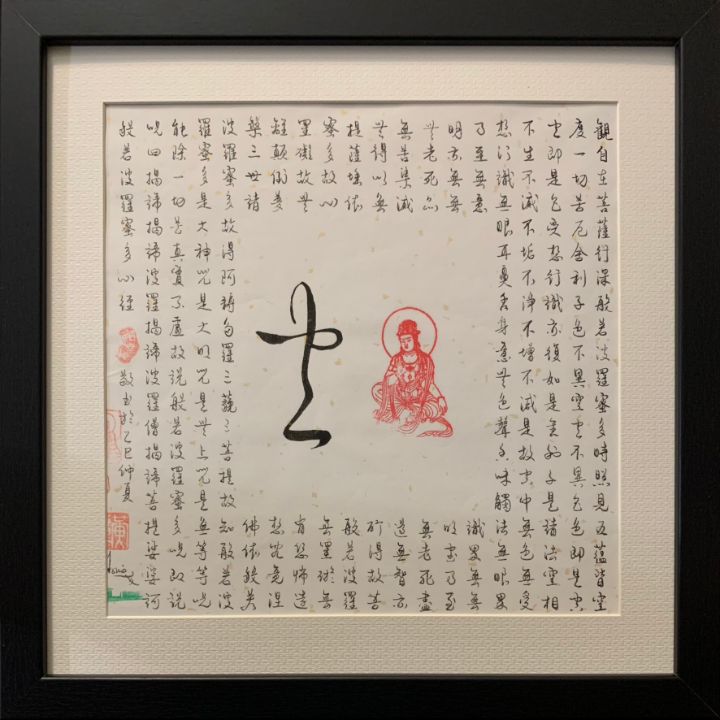 觀自在菩薩行深般若波羅蜜多時照見五蘊皆空
度一切苦厄舍利子色不異空空不異色色即是空
空即是色受想行識亦復如是舍利子是諸法空相
不生不滅不垢不淨不增不減是故空中無色無受
想行識無眼耳鼻舌身意無色聲香味觸法無眼界
乃至無意識界無無
明亦無無明盡乃至
無老死亦無老死盡
無苦集滅道無智亦
無得以無所得故菩
提薩埵依般若波羅
蜜多故心無罣礙無
罣礙故無有恐怖遠
離顛倒夢想究竟涅
槃三世諸佛依般若
波羅蜜多故得阿耨多羅三藐三菩提故知般若波
羅蜜多是大神咒是大明咒是無上咒是無等等咒
能除一切苦真實不虛故說般若波羅蜜多咒即說
咒曰揭諦揭諦波羅揭諦波羅僧揭諦菩提娑婆訶
般若波羅蜜多心經
敬書於乙巳仲夏
空